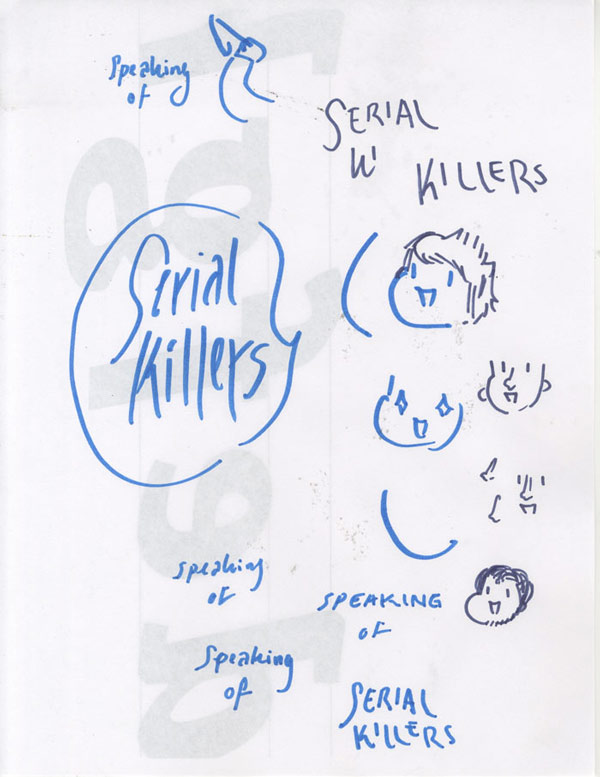 Speaking
of
SERIAL
KILLERS
Serial
Killers
speaking
of
SPEAKING
of
Speaking
of
SERIAL
KILLERS